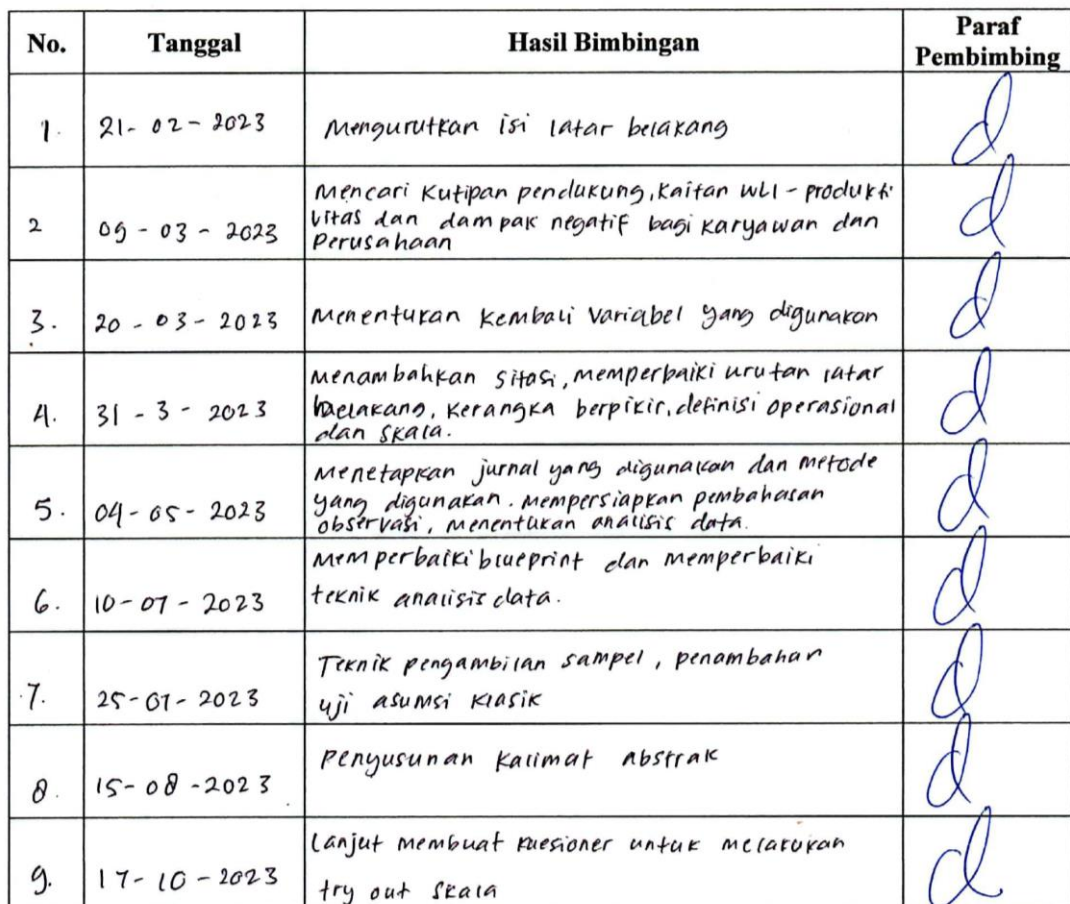 No. Tanggal Hasil Bimbingan Paraf
Pembimbing
1. 21-02-2023 Mengurutkan isi latar belakang
Mencari kutipan pendukung, kaitan WLI - produkti
2 09-03-2023 vitas dan dampak negatif bagi karyawan dan
Perusahaan
3. 20-03-2023 Menentukan kembali variabel yang digunakan
Menambahkan sitasi, memperbaiki urutan latar
4. 31-3-2023 belakang, kerangka berpikir, definisi operasional
dan skala.
Menetapkan jurnal yang digunakan dan metode
5. 04-05-2023 yang digunakan. Mempersiapkan pembahasan
observasi, menentukan analisis data.
Memperbaiki blueprint dan memperbaiki
6. 10-07-2023 teknik analisis data.
Teknik pengambilan sampel, penambahan
7. 25-07-2023 uji asumsi klasik
Penyusunan kalimat abstrak
8. 15-08-2023
Lanjut membuat kuesioner untuk melakukan
9. 17-10-2023 try out skala